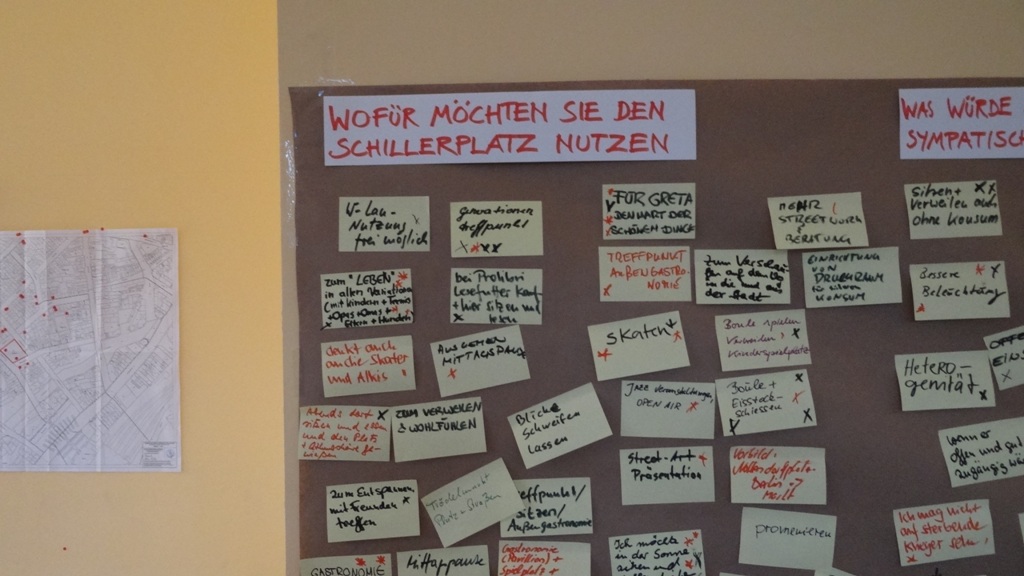 WOFÜR MÖCHTEN SIE DEN
SCHILLERPLATZ NUTZEN
WAS WÜRDE
SYMPATISCH
W-Lan-
Nutzung
frei möglich
Generationen
treffpunkt
FÜR GRETA
DENHART DER
SCHÖNEN DINGE
MEHR
STREETWORK
BERATUNG
Sitzen +
Verweilen auch
ohne Konsum
zum "LEBEN"
in allen
(mit Kindern + Tennis
Opas + Omas +
Eltern + Hunden)
bei Prolibri
Lesefutter
+ hier sitzen und
lesen
TREFFPUNKT
AUßENGASTRO-
NOMIE
auf den
in die und aus
der Stadt
EINRICHTUNG
VON
KONSUM
Bessere
Beleuchtung
denkt auch
an die Skater
und Alkis!
AUSGEHEN
MITTAGSPAUSE
Skaten
Boule spielen
Verweilen,
Kinderspielplatz
Hetero-
genität
OFFEN
Abends dort
sitzen und
und den Platz
+ Atmosphäre ge-
nießen
ZUM VERWEILEN
& WOHLFÜHLEN
Blicke
Schweifen
Lassen
Jazz Veranstaltungen,
OPEN AIR
Boule +
Eisstock-
schiessen
immer
offen und gut
zugängig
Street-Art
Präsentation
Vorbild:
Berlin
zum Entspannen
mit Freunden
treffen
Trödelmarkt
Platz + Straßen
Treffpunkt/
sitzen/
Außengastronomie
promenieren
Ich mag nicht
auf sterbende
Krieger sehn!
GASTRONOMIE
Mittagspause
Gastronomie
(Pavillon) +
Spielplatz +
Ich möchte
in der Sonne
sitzen und